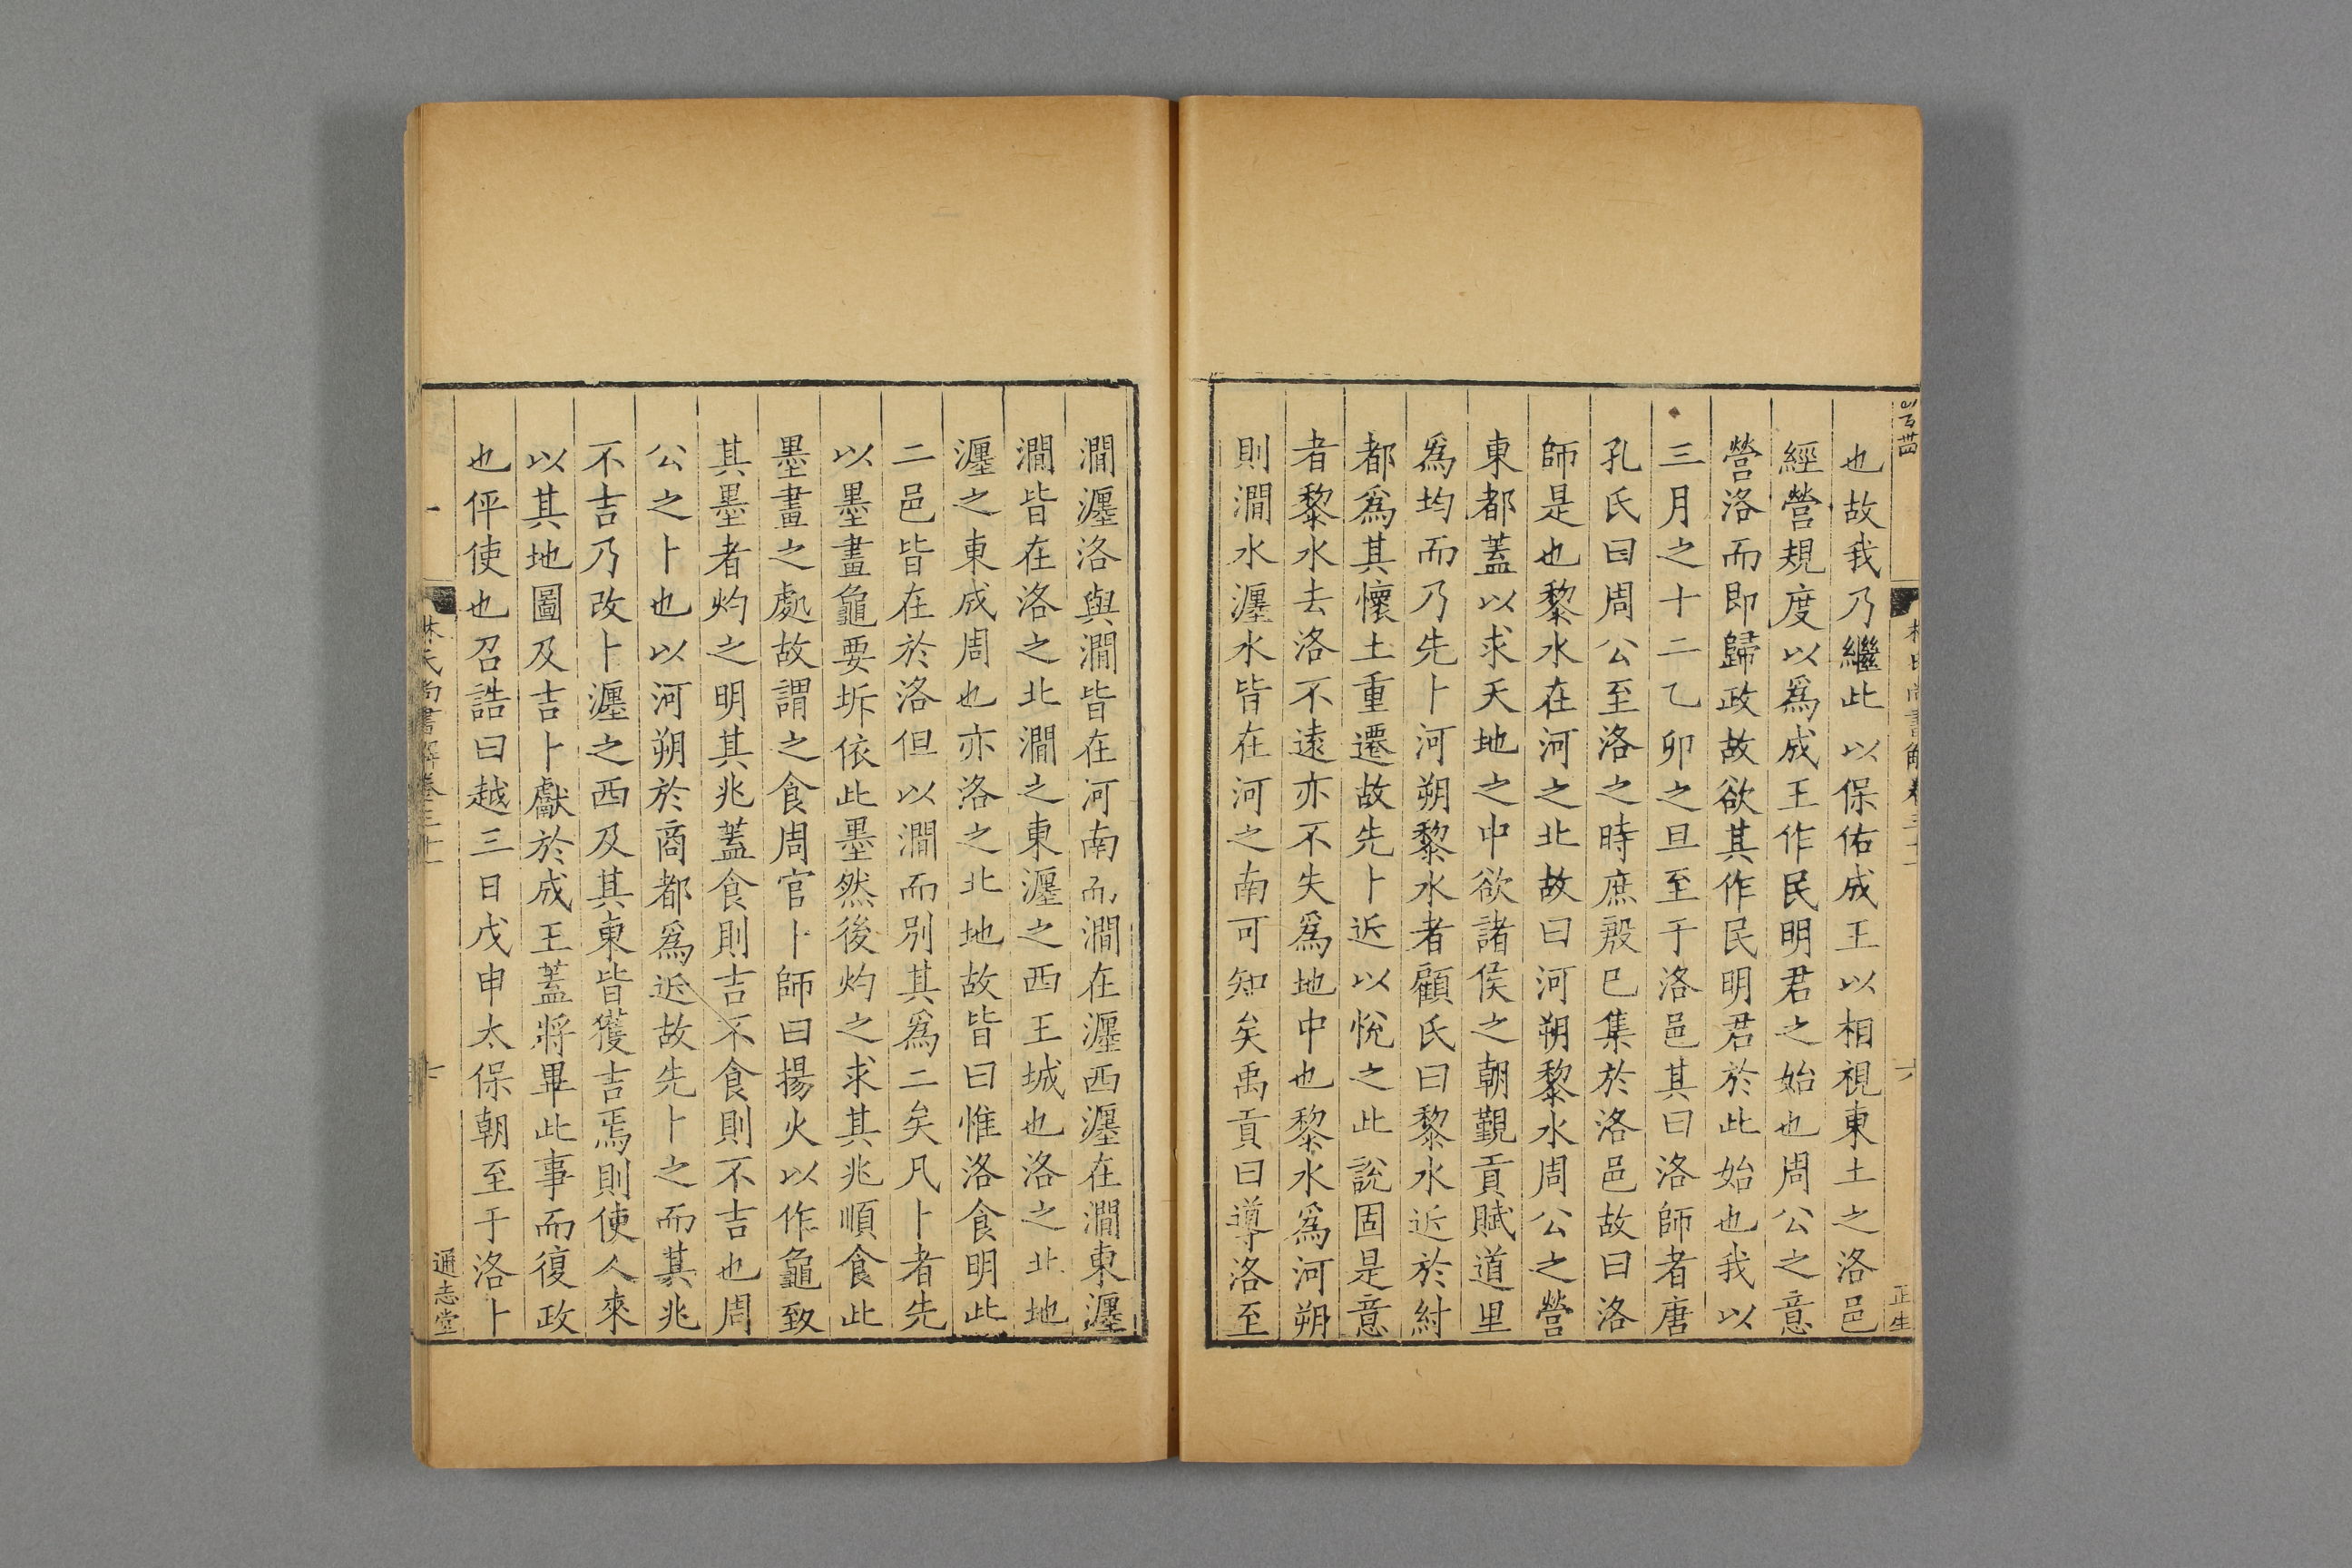 也故我乃繼此以保佑成王以相視東土之洛邑
經營規度以爲成王作民明君之始也周公之意
營洛而即歸政故欲其作民明君於此始也我以
三月之十二乙卯之旦至于洛邑其曰洛師者唐
孔氏曰周公至洛之時庶殷已集於洛邑故曰洛
師是也黎水在河之北故曰河朔黎水周公之營
東都蓋以求天地之中欲諸侯之朝覲貢賦道里
爲均而乃先卜河朔黎水者顧氏曰黎水近於紂
都爲其懷土重遷故先卜近以悅之此說固是意
者黎水去洛不遠亦不失爲地中也黎水爲河朔
則澗水瀍水皆在河之南可知矣禹貢曰導洛至
正生
澗瀍洛與澗皆在河南而澗在瀍西瀍在澗東瀍
澗皆在洛之北澗之東瀍之西王城也洛之北地
瀍之東成周也亦洛之北地故皆曰惟洛食明此
二邑皆在於洛但以澗而別其爲二矣凡卜者先
以墨畫龜要坼依此墨然後灼之求其兆順食此
墨畫之處故謂之食周官卜師曰揚火以作龜致
其墨者灼之明其兆蓋食則吉不食則不吉也周
公之卜也以河朔於商都爲近故先卜之而其兆
不吉乃改卜瀍之西及其東皆獲吉焉則使人來
以其地圖及吉卜獻於成王蓋將畢此事而復政
也伻使也召誥曰越三日戊申太保朝至于洛卜
林氏尚書解卷三十一
通志堂